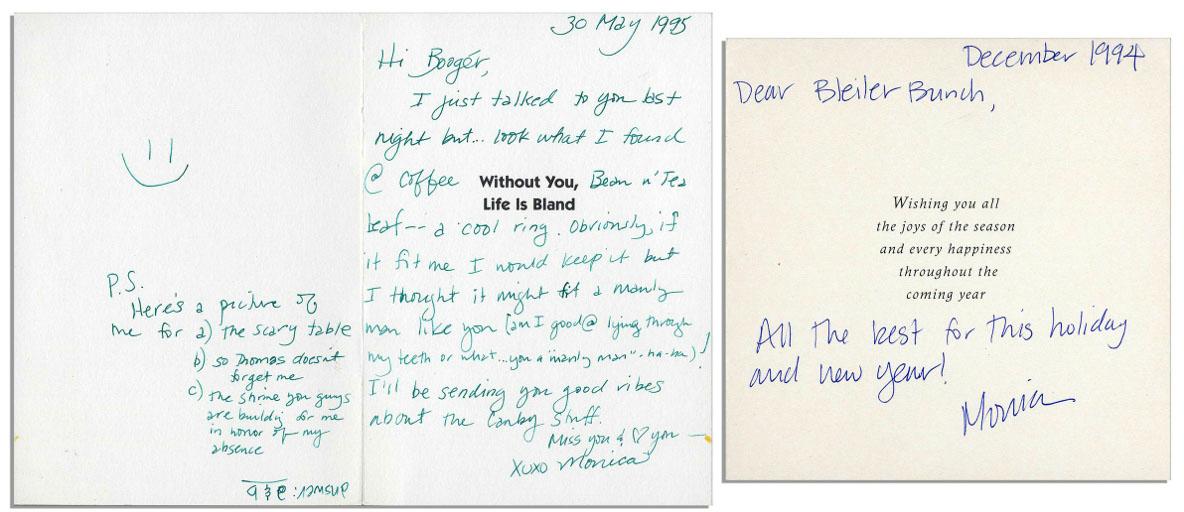 30 May 1995
Hi Boogér,
I just talked to you last
night but... look what I found
@ Coffee Without You, Bean n' Tea
Life Is Bland
Leaf-- a cool ring. Obviously, if
it fit me I would keep it but
I thought it might fit a manly
man like you (am I good @ lying through
my teeth or what...you a "manly man" - ha-ha)!
I'll be sending you good vibes
about the Canby stuff.
Miss you & ♡ you —
XOXO Monica
P.S.
Here's a picture of
me for a) the scary table
b) so Thomas doesn't
forget me
c) the shrine you guys
are buildig for me
in honor of my
absence
answer: a & b
December 1994
Dear Bleiler Bunch,
Wishing you all
the joys of the season
and every happiness
throughout the
coming year
All the best for this holiday
and new year!
Monica